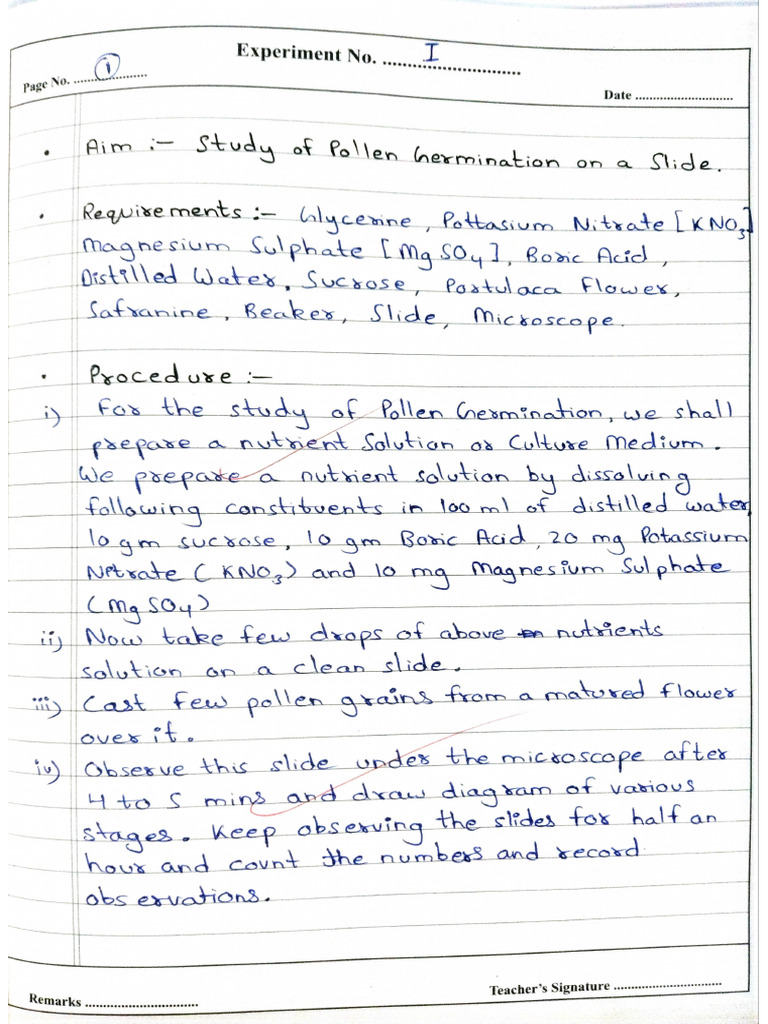 Experiment No. I
Page No. 1
Date
• Aim :- Study of Pollen Germination on a Slide.
• Requirements :- Glycerine, Pottasium Nitrate [KNO3]
Magnesium Sulphate [MgSO4], Boric Acid,
Distilled Water, Sucrose, Portulaca Flower,
Safranine, Beaker, Slide, Microscope.
• Procedure :-
i) For the study of Pollen Germination, we shall
prepare a nutrient Solution or Culture Medium.
We prepare a nutrient solution by dissolving
following constituents in 100 ml of distilled water,
10 gm sucrose, 10 gm Boric Acid, 20 mg Potassium
Nitrate (KNO3) and 10 mg Magnesium Sulphate
(MgSO4)
ii) Now take few drops of above nutrients
solution on a clean slide.
iii) Cast few pollen grains from a matured flower
over it.
iv) Observe this slide under the microscope after
4 to 5 mins and draw diagram of various
stages. Keep observing the slides for half an
hour and count the numbers and record
observations.
Remarks
Teacher's Signature